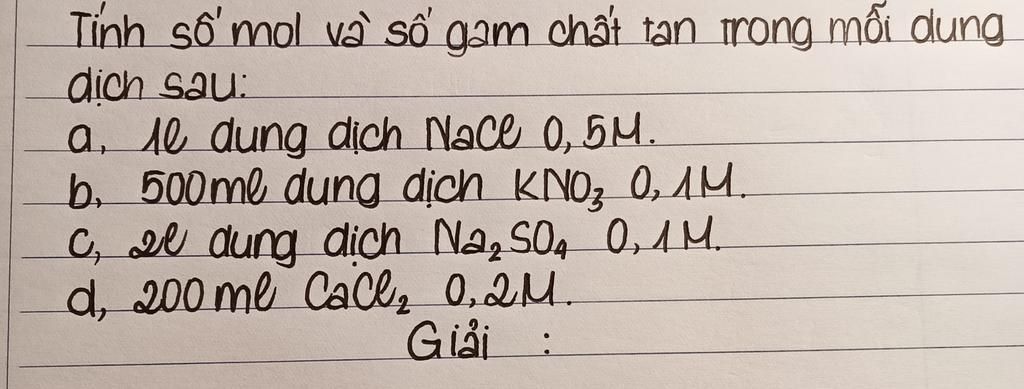 Tính số mol và số gam chất tan trong mỗi dung
dịch sau:
a, 1l dung dịch NaCl 0,5M.
b, 500ml dung dịch KNO₃ 0,1M.
c, 2l dung dịch Na₂SO₄ 0,1M.
d, 200ml CaCl₂ 0,2M.
Giải :